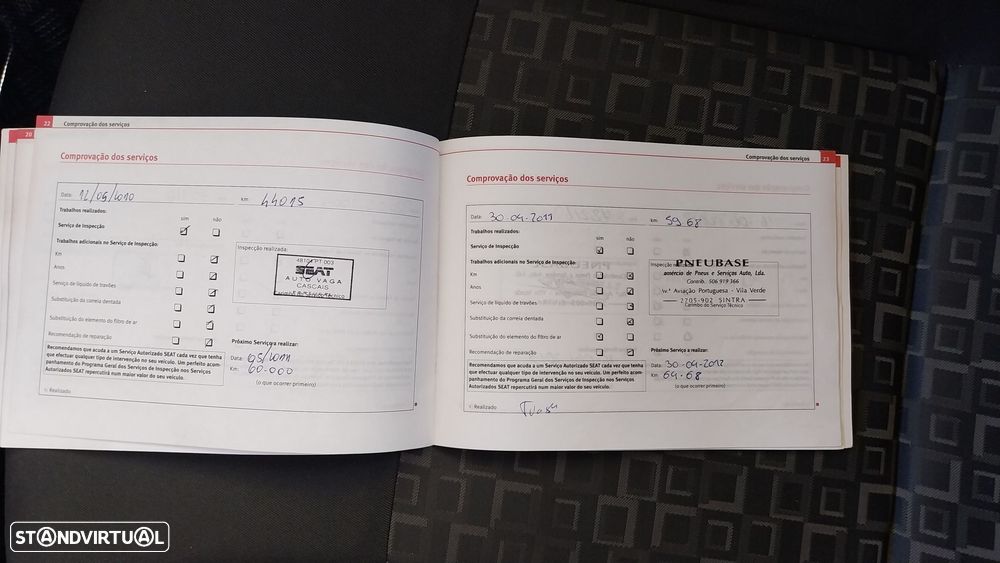 22 Comprovação dos serviços
20
Comprovação dos serviços
Data: 12/05/2010 km 44015
Trabalhos realizados:
sim não
Serviço de Inspecção
Trabalhos adicionais no Serviço de Inspecção:
Km
Anos
Serviço de líquido de travões
Substituição da correia dentada
Substituição do elemento do filtro de ar
Recomendação de reparação
Inspecção realizada:
SEAT
AUTO VAGA
CASCAIS
Carimbo do Serviço Técnico
Próximo Serviço a realizar:
Data: 05/2011
Km: 60.000
(o que ocorrer primeiro)
Recomendamos que acuda a um Serviço Autorizado SEAT cada vez que tenha
que efectuar qualquer tipo de intervenção no seu veículo. Um perfeito acom-
panhamento do Programa Geral dos Serviços de Inspecção nos Serviços
Autorizados SEAT repercutirá num maior valor do seu veículo.
Realizado
Comprovação dos serviços 23
Comprovação dos serviços
Data: 30-04-2011 km: 59 68
Trabalhos realizados:
sim não
Serviço de Inspecção
Trabalhos adicionais no Serviço de Inspecção:
Km
Anos
Serviço de líquido de travões
Substituição da correia dentada
Substituição do elemento do filtro de ar
Recomendação de reparação
Inspecção
PNEUBASE
comércio de Pneus e Serviços Auto, Lda.
Contrib. 506 919 366
Aviação Portuguesa - Vila Verde
2705-902 SINTRA
Carimbo do Serviço Técnico
Próximo Serviço a realizar:
Data: 30-04-2012
Km: 64-68
(o que ocorrer primeiro)
Recomendamos que acuda a um Serviço Autorizado SEAT cada vez que tenha
que efectuar qualquer tipo de intervenção no seu veículo. Um perfeito acom-
panhamento do Programa Geral dos Serviços de Inspecção nos Serviços
Autorizados SEAT repercutirá num maior valor do seu veículo.
Realizado
STANDVIRTUAL